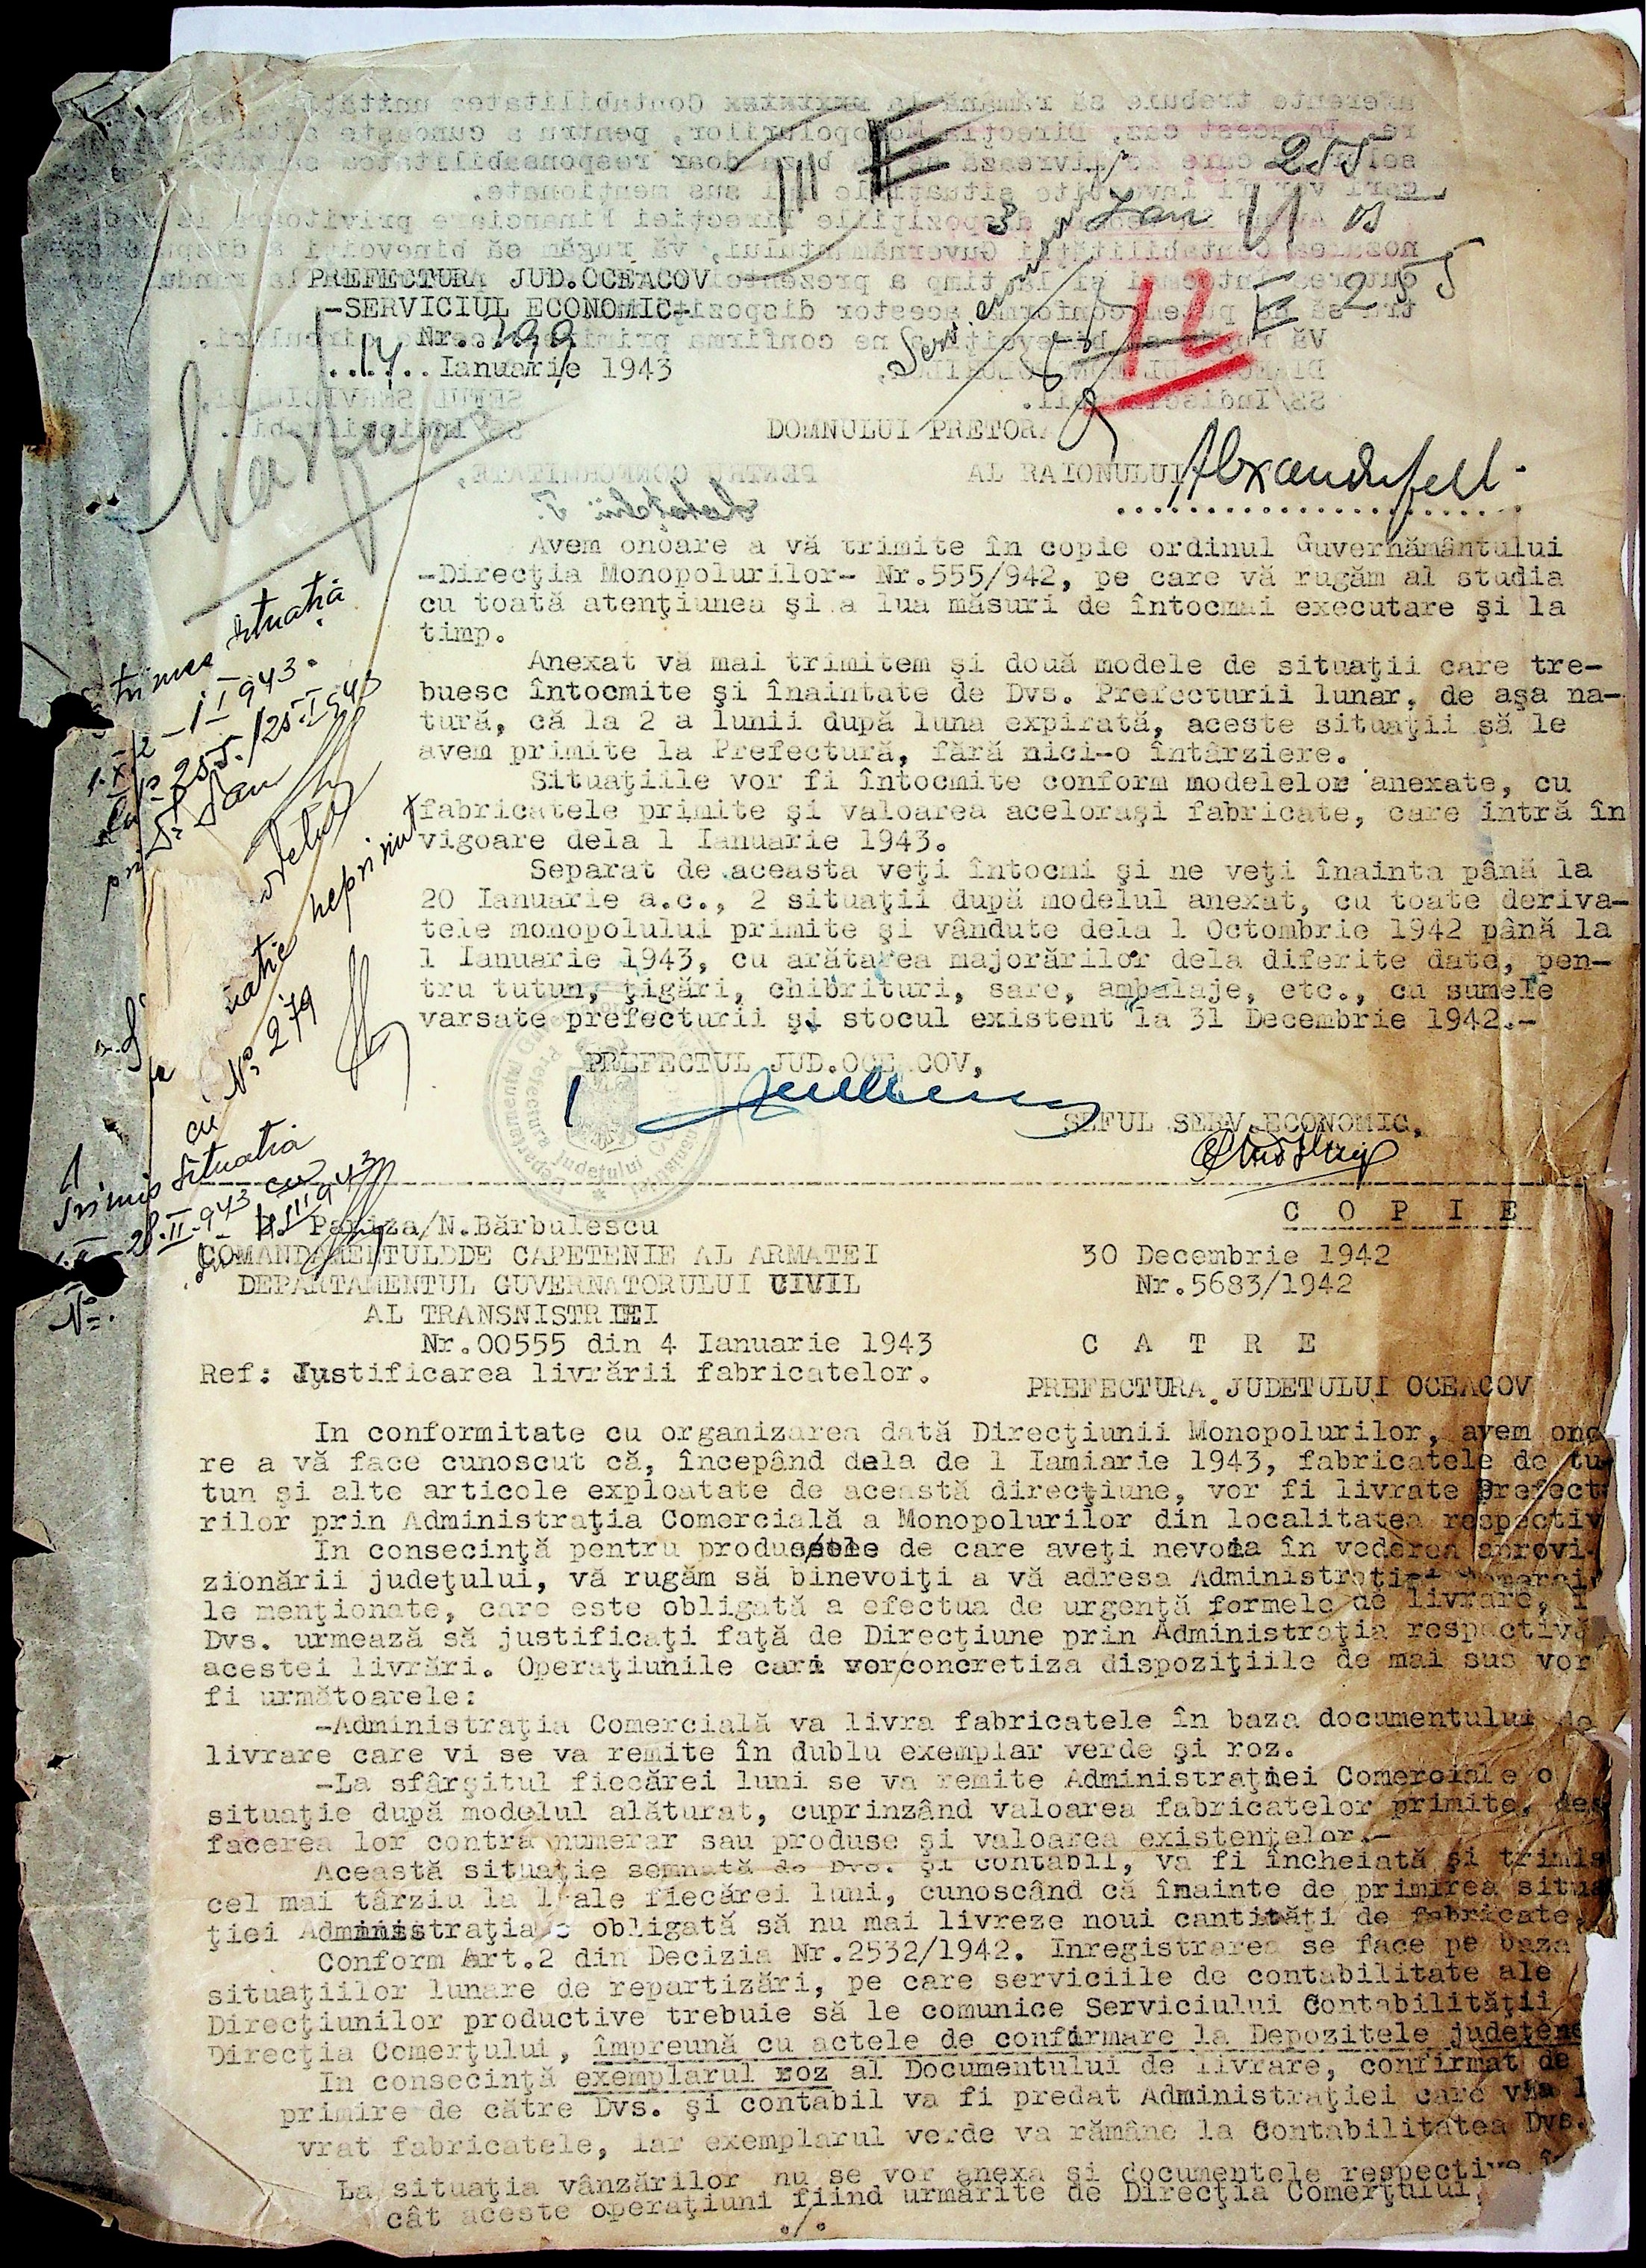 255
3 Ian 1943
E 255
12
PREFECTURA JUD.OCEACOV
-SERVICIUL ECONOMIC-
Nr. 199
..14.. Ianuarie 1943
DOMNULUI PRETOR
AL RAIONULUI Alexanderfeld
Avem onoare a vă trimite în copie ordinul Guvernământului
-Direcţia Monopolurilor- Nr.555/942, pe care vă rugăm al studia
cu toată atenţiunea şi a lua măsuri de întocmai executare şi la
timp.
Anexat vă mai trimitem şi două modele de situaţii care tre-
buesc întocmite şi înaintate de Dvs. Prefecturii lunar, de aşa na-
tură, că la 2 a lunii după luna expirată, aceste situaţii să le
avem primite la Prefectură, fără nici-o întârziere.
Situaţiile vor fi întocmite conform modelelor anexate, cu
fabricatele primite şi valoarea aceloraşi fabricate, care intră în
vigoare dela 1 Ianuarie 1943.
Separat de aceasta veţi întocmi şi ne veţi înainta până la
20 Ianuarie a.c., 2 situaţii după modelul anexat, cu toate deriva-
tele monopolului primite şi vândute dela 1 Octombrie 1942 până la
1 Ianuarie 1943, cu arătarea majorărilor dela diferite date, pen-
tru tutun, ţigări, chibrituri, sare, ambalaje, etc., cu sumele
varsate prefecturii şi stocul existent la 31 Decembrie 1942.-
PREFECTUL JUD.OCEACOV,
SEFUL SERV.ECONOMIC,
trimes situaţia
1.I 943.
255./25.I 943
nepriimit
cu Nº 279
Trimis situatia
28.II.943 cu
Nº.
C O P I E
Pariza/N.Bărbulescu
COMANDAMENTULDDE CAPETENIE AL ARMATEI
DEPARTAMENTUL GUVERNATORULUI CIVIL
AL TRANSNISTRIEI
Nr.00555 din 4 Ianuarie 1943
Ref: Justificarea livrării fabricatelor.
30 Decembrie 1942
Nr.5683/1942
C A T R E
PREFECTURA JUDETULUI OCEACOV
In conformitate cu organizarea dată Direcţiunii Monopolurilor, avem ono
re a vă face cunoscut că, începând dela de 1 Iamiarie 1943, fabricatele de tu
tun şi alte articole exploatate de această direcţiune, vor fi livrate Prefect
rilor prin Administraţia Comercială a Monopolurilor din localitatea respectiv
In consecinţă pentru produsele de care aveţi nevoia în vederea aprovi-
zionării judeţului, vă rugăm să binevoiţi a vă adresa Administraţiei Comerci
le menţionate, care este obligată a efectua de urgenţă formele de livrare, i
Dvs. urmează să justificaţi faţă de Direcţiune prin Administraţia respectivă
acestei livrări. Operaţiunile cari vor concretiza dispoziţiile de mai sus vor
fi următoarele:
-Administraţia Comercială va livra fabricatele în baza documentului de
livrare care vi se va remite în dublu exemplar verde şi roz.
-La sfârşitul fiecărei luni se va remite Administraţiei Comerciale o
situaţie după modelul alăturat, cuprinzând valoarea fabricatelor primite, des
facerea lor contra numerar sau produse şi valoarea existenţelor.-
Această situaţie semnată de Dvs. şi contabil, va fi încheiată şi trimis
cel mai târziu la 1 ale fiecărei luni, cunoscând că înainte de primirea situa
ţiei Administraţia e obligată să nu mai livreze noui cantităţi de fabricate.
Conform Art.2 din Decizia Nr.2532/1942. Inregistrarea se face pe baza
situaţiilor lunare de repartizări, pe care serviciile de contabilitate ale
Direcţiunilor productive trebuie să le comunice Serviciului Contabilităţii
Direcţia Comerţului, împreună cu actele de confirmare la Depozitele judeţene
In consecinţă exemplarul roz al Documentului de livrare, confirmat de
primire de către Dvs. şi contabil va fi predat Administraţiei care va l
vrat fabricatele, iar exemplarul verde va rămâne la Contabilitatea Dvs.
La situaţia vânzărilor nu se vor anexa şi documentele respective în
cât aceste operaţiuni fiind urmărite de Direcţia Comerţului,
./.